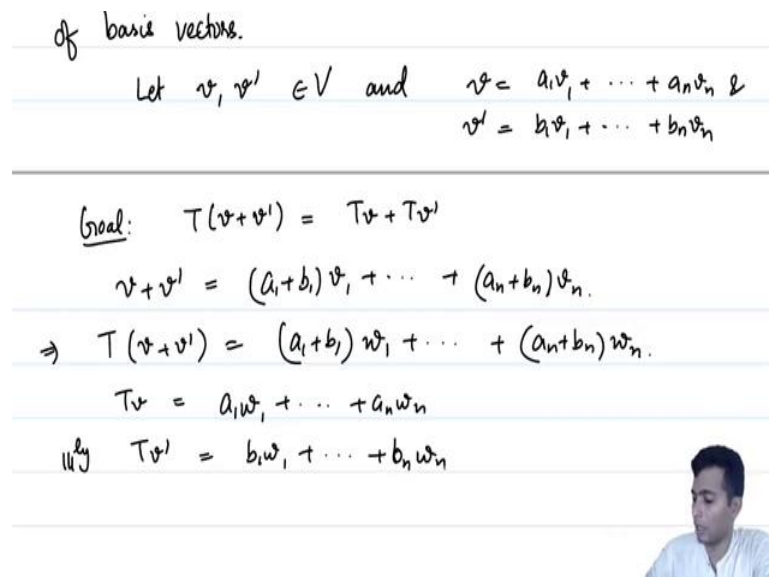 of basis vectors.
Let v, v' ∈ V and v = a₁v₁ + ⋯ + aₙvₙ &
v' = b₁v₁ + ⋯ + bₙvₙ
Goal: T(v+v') = Tv + Tv'
v+v' = (a₁+b₁)v₁ + ⋯ + (aₙ+bₙ)vₙ.
⇒ T(v+v') = (a₁+b₁)w₁ + ⋯ + (aₙ+bₙ)wₙ.
Tv = a₁w₁ + ⋯ + aₙwₙ
|||ly Tv' = b₁w₁ + ⋯ + bₙwₙ